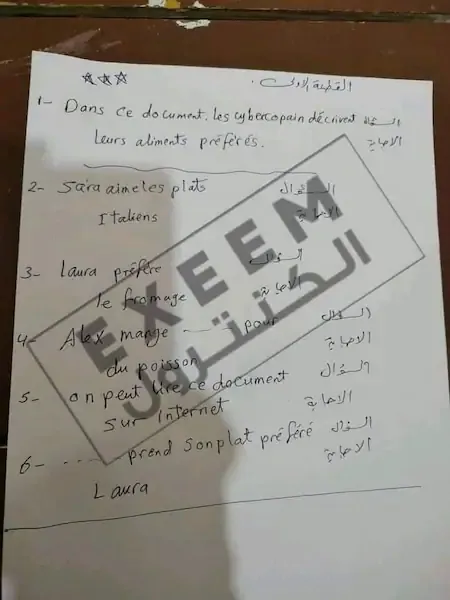 القطعة الاولى
1- Dans ce document. les cybercopain décrivent السؤال
Leurs aliments préférés. الاجابة
2- Sara aime les plats السؤال
Italiens الاجابة
3- Laura préfère السؤال
le fromage الاجابة
4- Alex mange ---- pour السؤال
du poisson الاجابة
5- on peut lire ce document السؤال
sur Internet الاجابة
6- ------ prend son plat préféré السؤال
Laura الاجابة
EXEEM
الكنترول